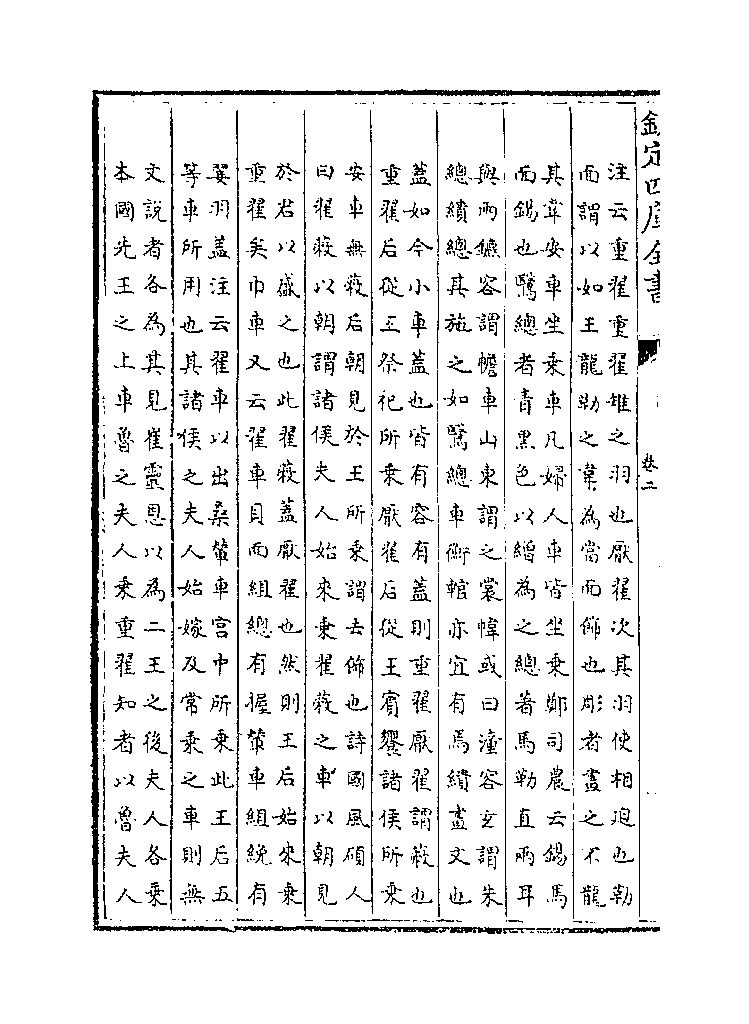 欽定四庫全書
卷二
注云重翟重翟雉之羽也厭翟次其羽使相迫也勒
面謂以如王龍勒之韋為當面飾也彫者畫之不龍
其韋安車坐乗車凡婦人車皆坐乗鄭司農云錫馬
面錫也鷖總者青黑色以繒為之總著馬勒直兩耳
與兩鑣容謂幨車山東謂之裳幃或曰潼容玄謂朱
總繢總其施之如鷖總車衡輨亦宜有焉繢畫文也
蓋如今小車蓋也皆有容有蓋則重翟厭翟謂蔽也
重翟后從王祭祀所乗厭翟后從王賓饗諸侯所乗
安車無蔽后朝見於王所乗謂去飾也詩國風碩人
曰翟蔽以朝謂諸侯夫人始來乗翟蔽之車以朝見
於君以盛之也此翟蔽蓋厭翟也然則王后始來乗
重翟矣巾車又云翟車貝面組總有握輦車組綩有
翣羽蓋注云翟車以出桑輦車宫中所乗此王后五
等車所用也其諸侯之夫人始嫁及常乗之車則無
文說者各為其見崔靈恩以為二王之後夫人各乗
本國先王之上車魯之夫人乗重翟知者以魯夫人